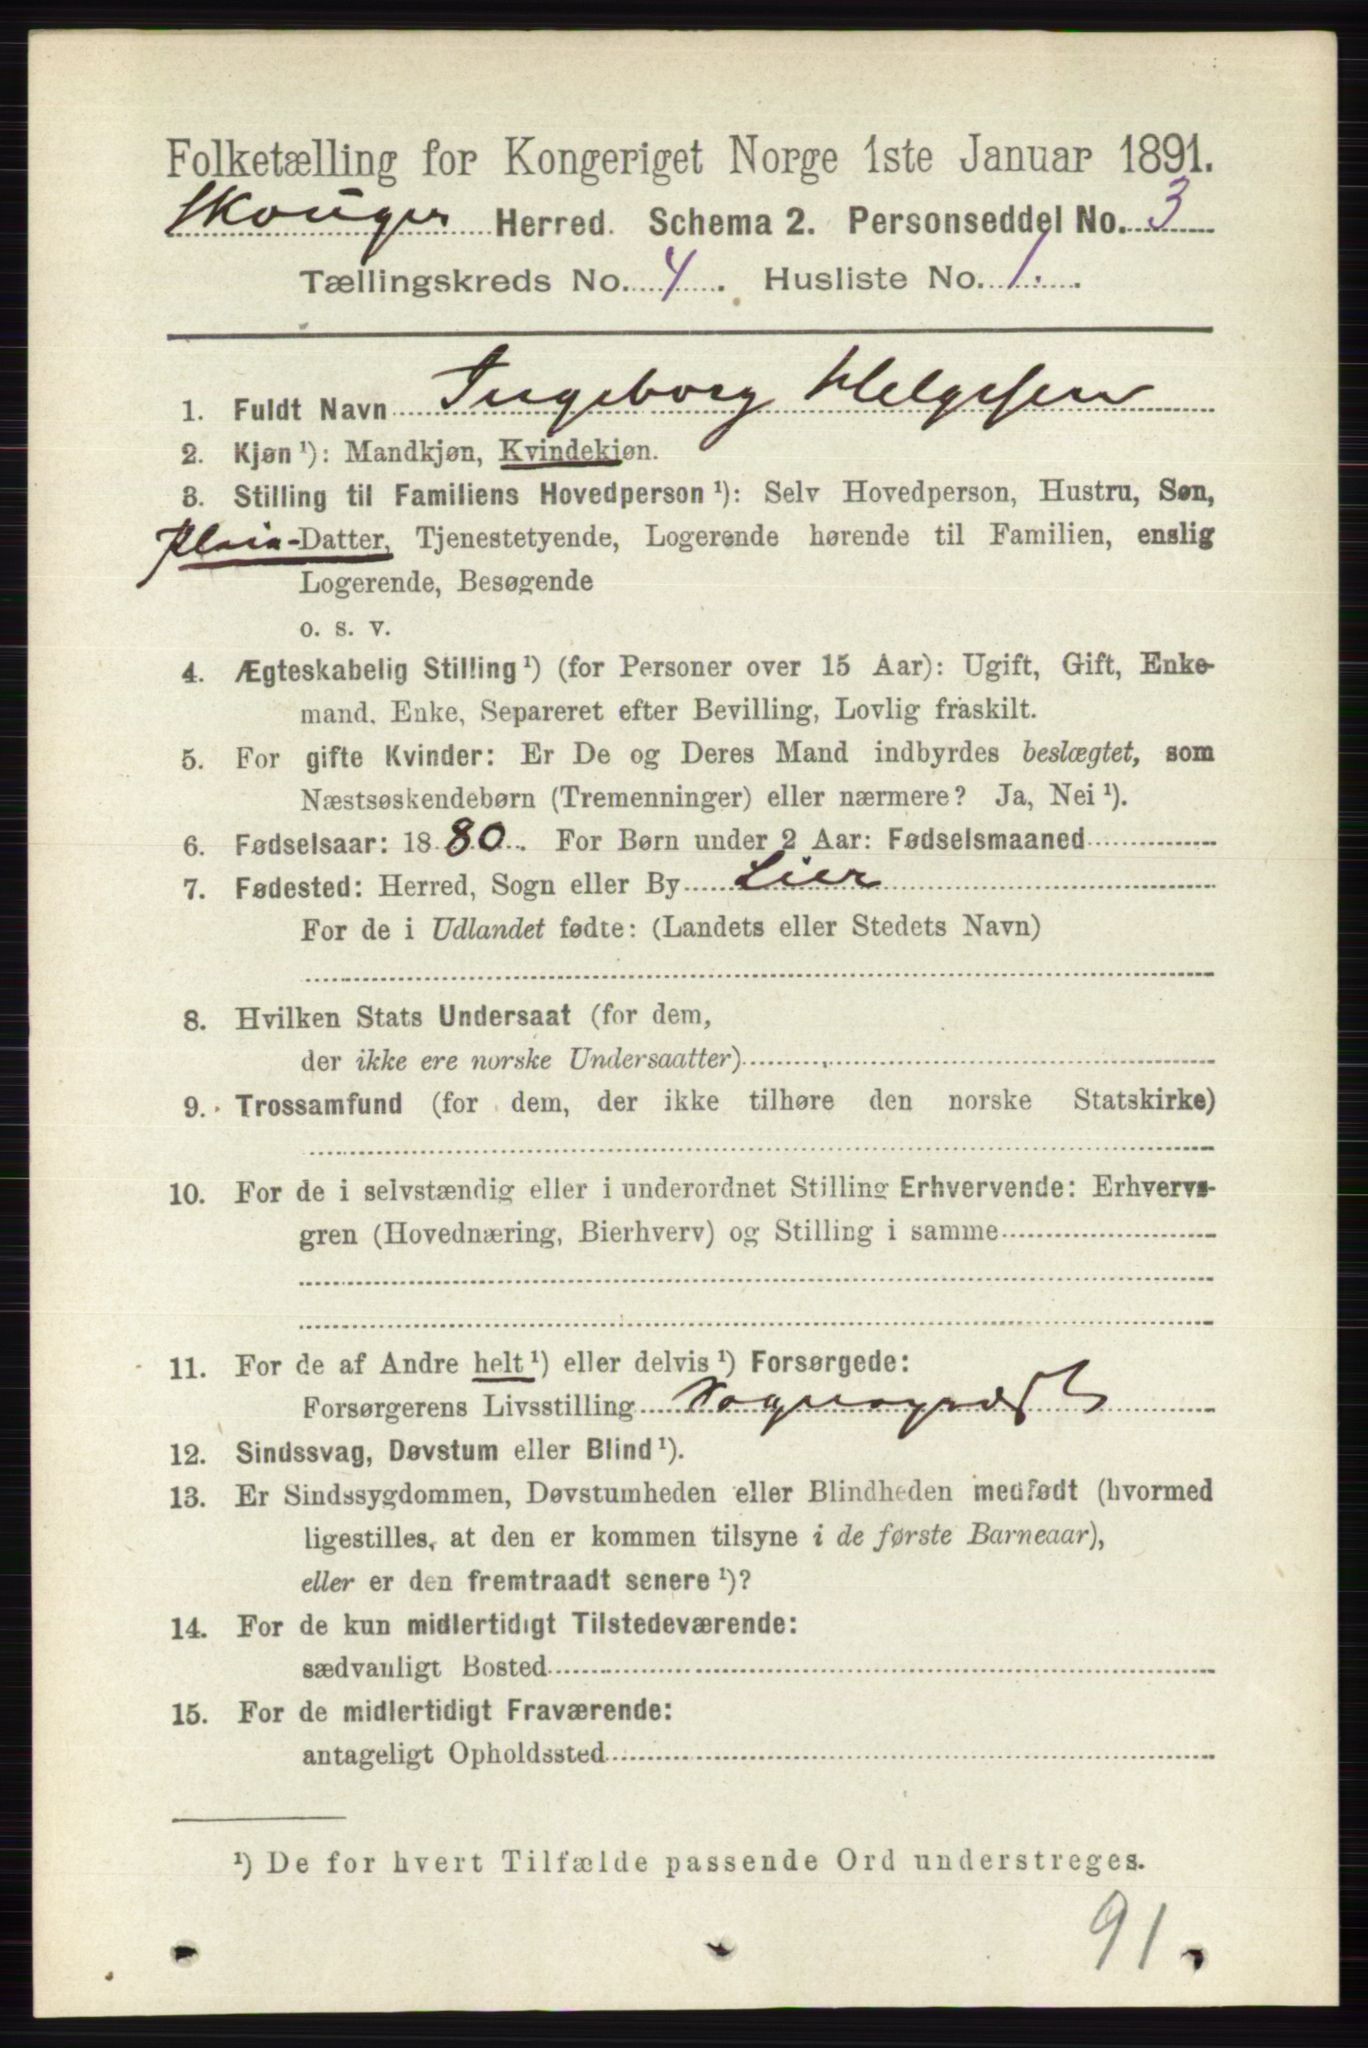 Folketælling for Kongeriget Norge 1ste Januar 1891.
Skouger Herred. Schema 2. Personseddel No. 3
Tællingskreds No. 4. Husliste No. 1.
1. Fuldt Navn Ingeborg Helgesen
2. Kjøn ¹): Mandkjøn, Kvindekjøn.
3. Stilling til Familiens Hovedperson ¹): Selv Hovedperson, Hustru, Søn,
Pleie-Datter, Tjenestetyende, Logerende hørende til Familien, enslig
Logerende, Besøgende
o. s. v.
4. Ægteskabelig Stilling ¹) (for Personer over 15 Aar): Ugift, Gift, Enke-
mand, Enke, Separeret efter Bevilling, Lovlig fraskilt.
5. For gifte Kvinder: Er De og Deres Mand indbyrdes beslægtet, som
Næstsøskendebørn (Tremenninger) eller nærmere? Ja, Nei ¹).
6. Fødselsaar: 1880. For Børn under 2 Aar: Fødselsmaaned
7. Fødested: Herred, Sogn eller By Lier
For de i Udlandet fødte: (Landets eller Stedets Navn)
8. Hvilken Stats Undersaat (for dem,
der ikke ere norske Undersaatter)
9. Trossamfund (for dem, der ikke tilhøre den norske Statskirke)
10. For de i selvstændig eller i underordnet Stilling Erhvervende: Erhvervs-
gren (Hovednæring, Bierhverv) og Stilling i samme
11. For de af Andre helt ¹) eller delvis ¹) Forsørgede:
Forsørgerens Livsstilling Sogneprest
12. Sindssvag, Døvstum eller Blind ¹).
13. Er Sindssygdommen, Døvstumheden eller Blindheden medfødt (hvormed
ligestilles, at den er kommen tilsyne i de første Barneaar),
eller er den fremtraadt senere ¹)?
14. For de kun midlertidigt Tilstedeværende:
sædvanligt Bosted
15. For de midlertidigt Fraværende:
antageligt Opholdssted
¹) De for hvert Tilfælde passende Ord understreges.
91.